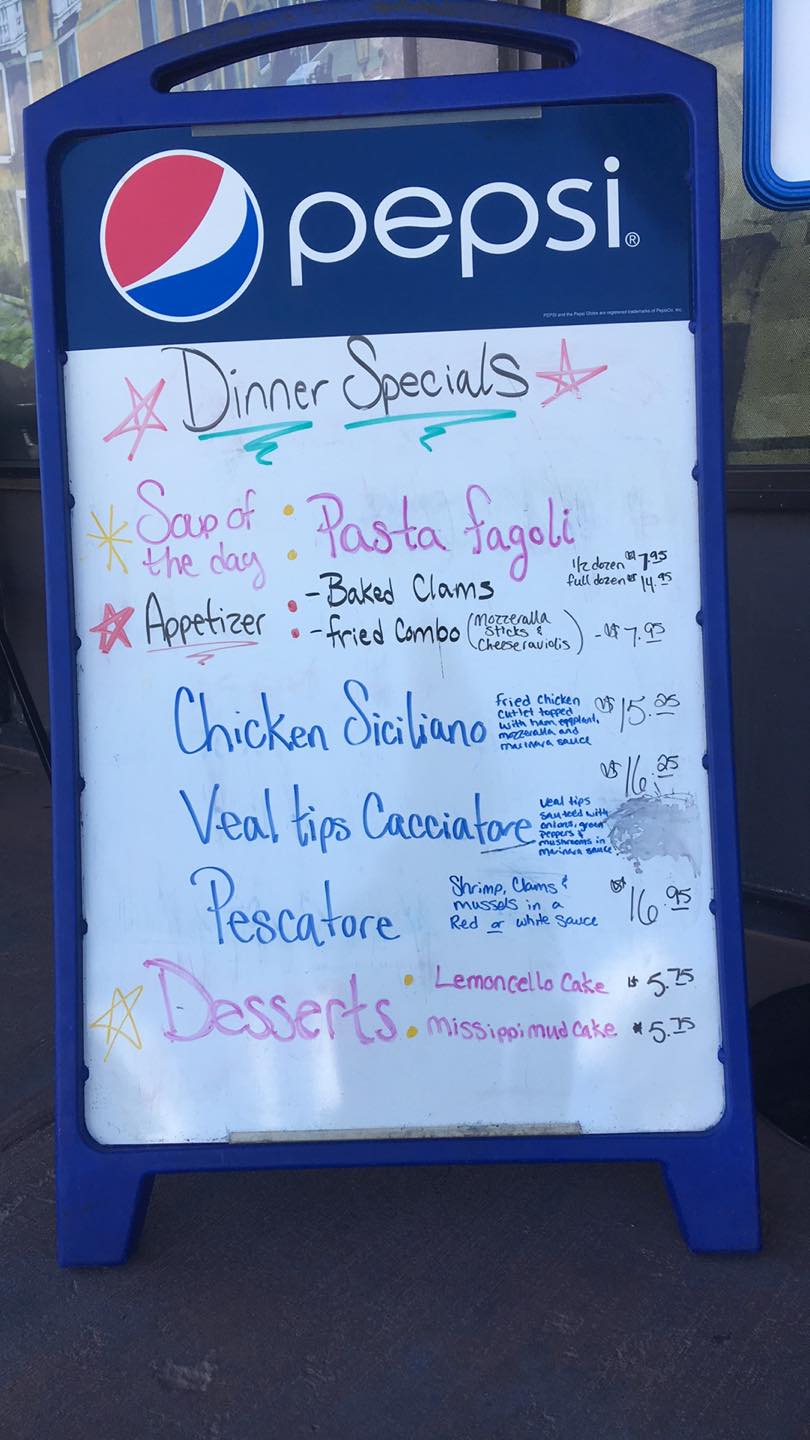 pepsi®
PEPSI and the Pepsi Globe are registered trademarks of PepsiCo, Inc.
Dinner Specials
Soup of the day : Pasta fagoli
Appetizer : - Baked Clams 1/2 dozen $7.95
full dozen $14.95
- fried Combo (Mozzeralla sticks & Cheese raviolis) - $7.95
Chicken Siciliano fried chicken $15.25
cutlet topped
with ham, eggplant,
mozzeralla and
marinara sauce
Veal tips Cacciatore $16.25
veal tips
sauteed with
onions, green
peppers &
mushrooms in
marinara sauce
Pescatore Shrimp, Clams & $16.95
mussels in a
Red or white sauce
Desserts : Lemoncello Cake $5.75
missippi mud Cake $5.75